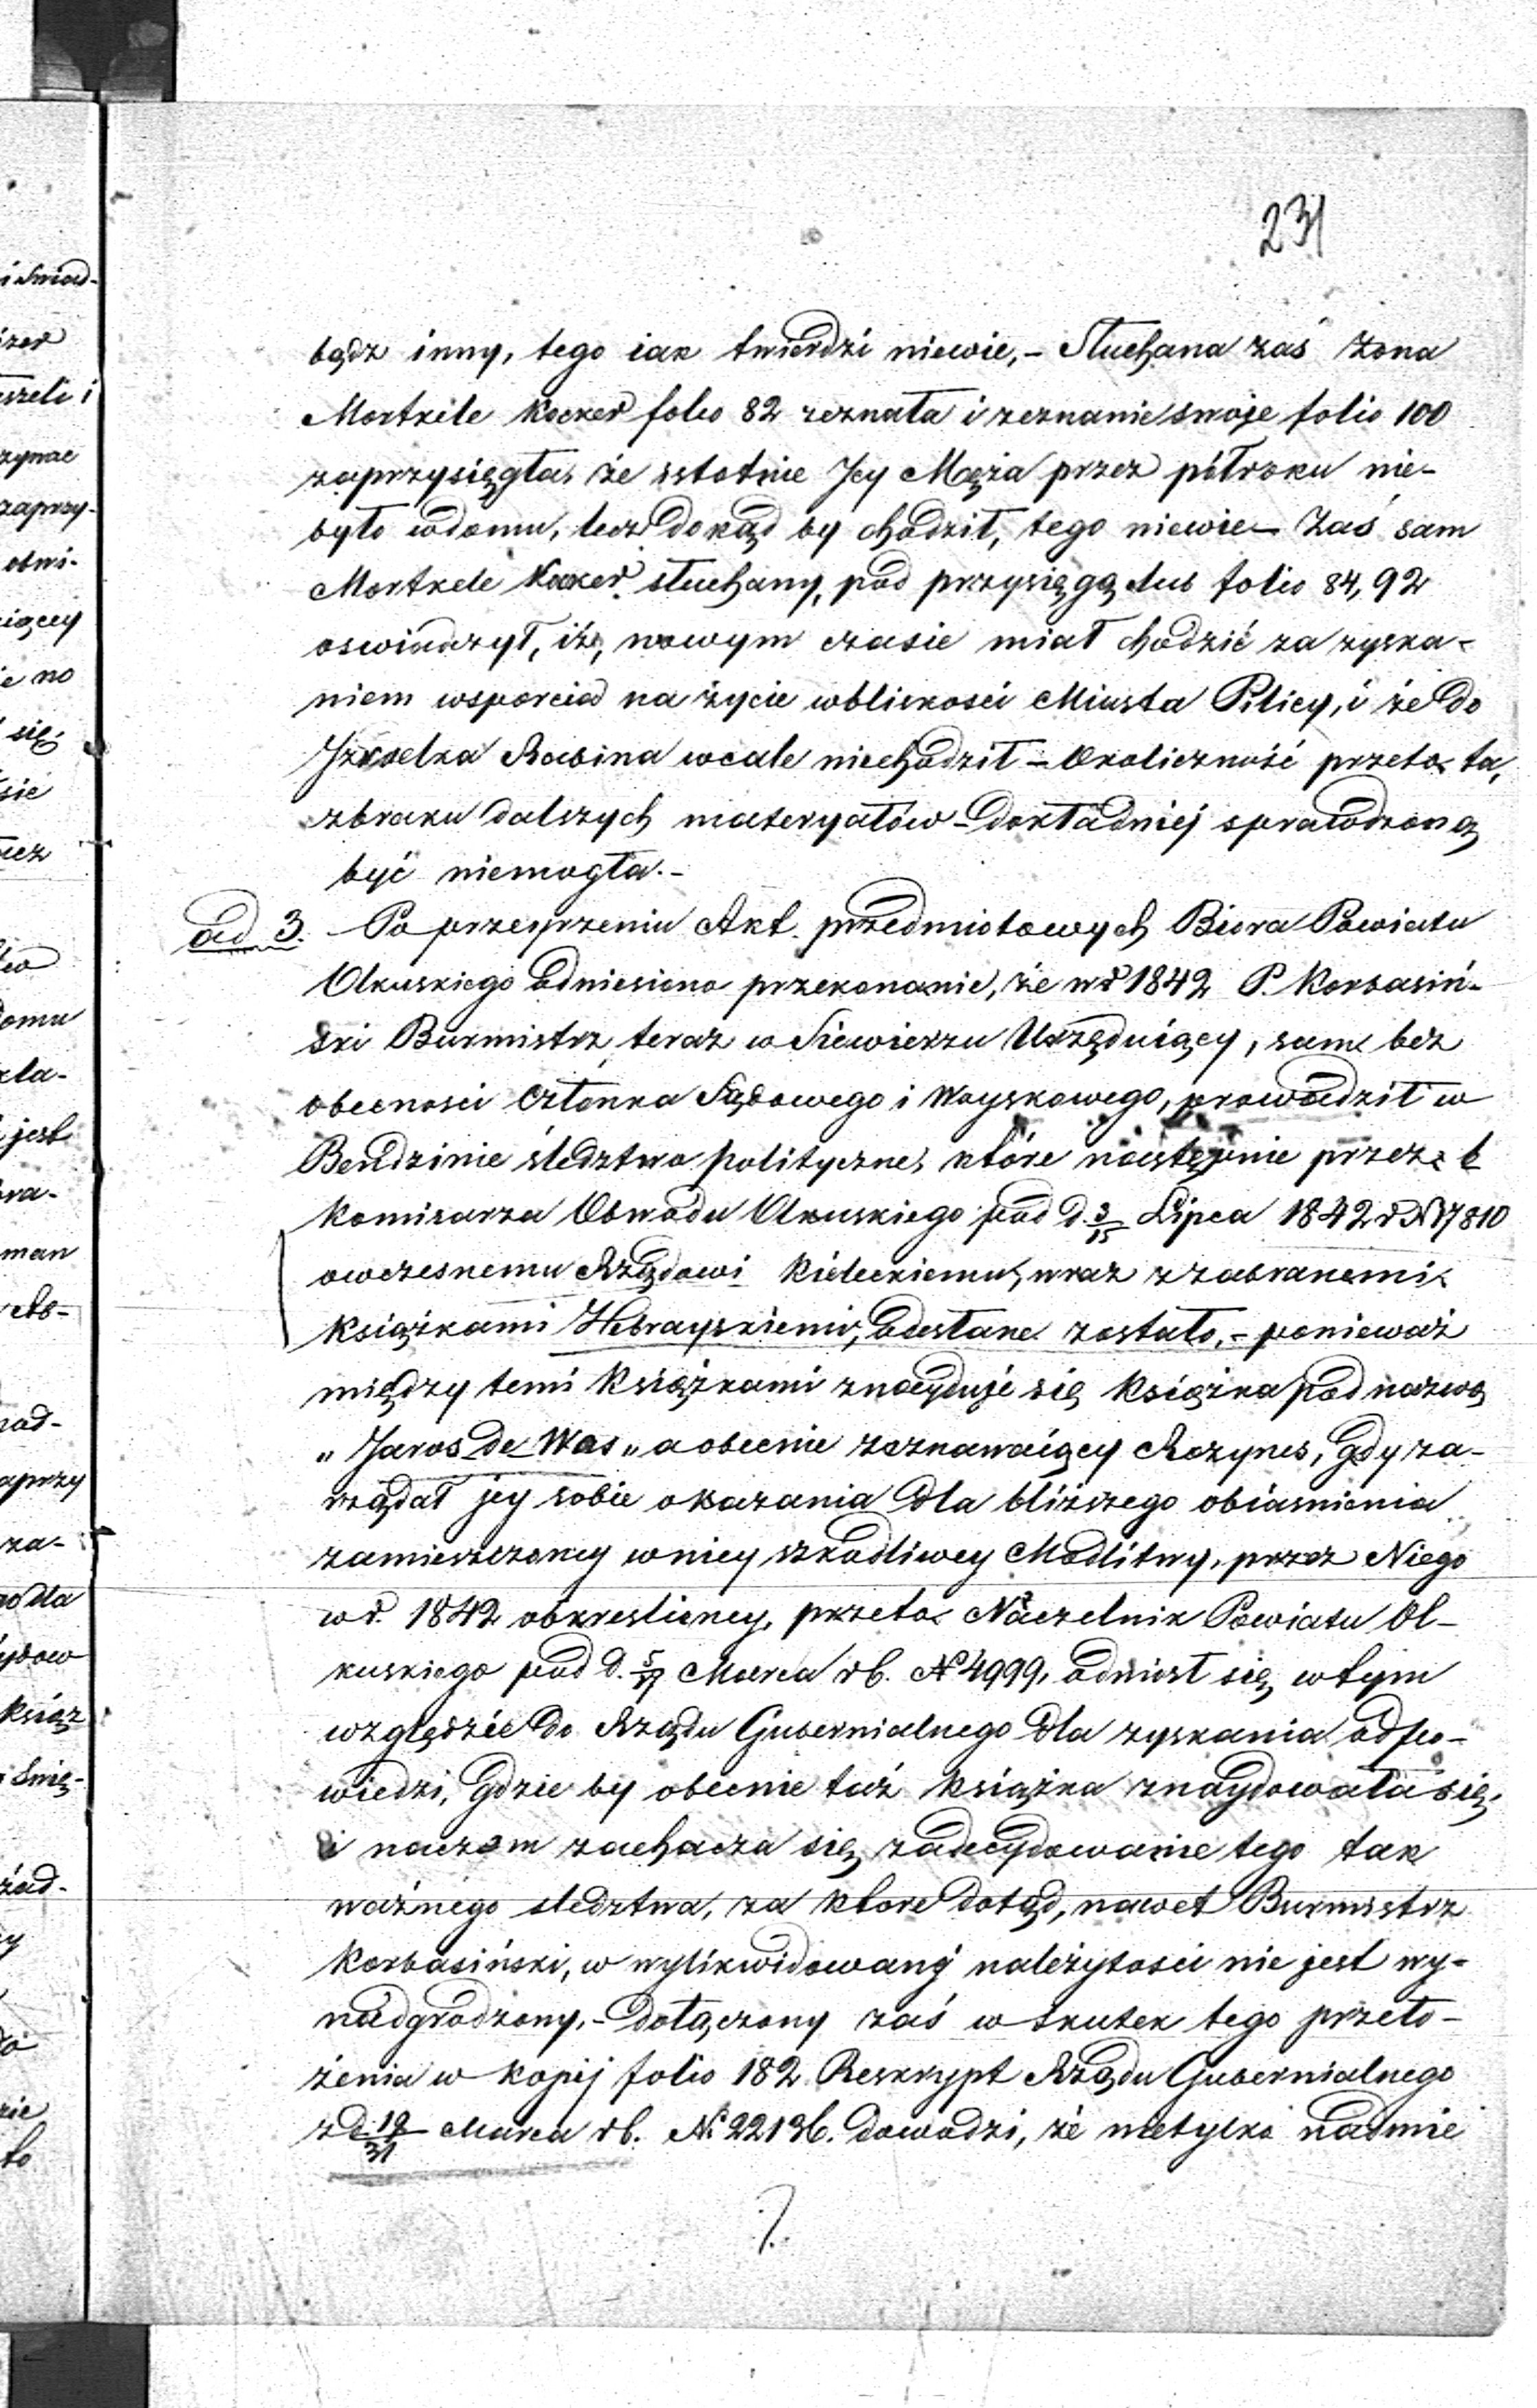 231
bądz inny, tego iak twierdzi niewie, – Słuchana zaś żona
Mortkele Kocker folio 82 zeznała i zeznanie swoje folio 100
zaprzysięgła, że istotnie Jey Męża przez półroku nie-
było wdomu, lecz dokąd by chodził, tego niewie – Zaś sam
Mortkele Kocker słuchany, pod przysięgą dub folio 84, 92
oswiadczył, iż, wowym czasie miał chodzić za zyska-
niem wsparcia na życie wbliskości Miasta Pilicy, i że do
Rabina wcale niechodził – Okoliczność przeto ta,
zbraku dalszych materyałów – dokładniej sprawdzoną
być niemogła. –
ad 3. Po przeyrzeniu Akt. przedmiotowych Biora Powiatu
Olkuskiego odniesiono przekonanie, że wr 1842 P. Korbasiń-
ski Burmistrz teraz w Siewierzu Urzęduiący, sam bez
obecności Członka Sądowego i Woyskowego, prowadził w
Bendzinie śledztwo polityczne, które nastepnie przez b
Komisarza Obwodu Olkuskiego pod d. 3/15 Lipca 1842 r N 17810
owczesnemu Rządowi Kieleckiemu, wraz z zabranemi
książkami Hebrayskiemi, odesłane zostało, – ponieważ
między temi Książkami znayduje się Książka pod nazwą
„ Jaros de Was „ a obecnie zeznawaiący Rozynes, gdy za-
rządał jey sobie okazania dla bliższego obiasnienia
zamieszczoney wniey szkodliwey Modlitwy, przez Niego
w r. 1842 obkreslioney, przeto Naczelnik Powiatu Ol-
kuskiego pod d. 5/17 Marca rb. N° 4999, odniosł się wtym
względzie do Rządu Gubernialnego dla zyskania odpo-
wiedzi, gdzie by obecnie taż książka znaydowała się,
i naczem zachacza się zadecydowanie tego tak
ważnego sledztwa, za ktore dotąd, nawet Burmistrz
Korbasiński, w wylikwidowanej należytości nie jest wy-
nadgrodzony, – dołączony zaś w skutek tego przeło-
żenia w Kopij folio 182 Reskrypt Rządu Gubernialnego
z d. 19/31 Marca rb. N. 22136. dowodzi, że nietylko nadmie